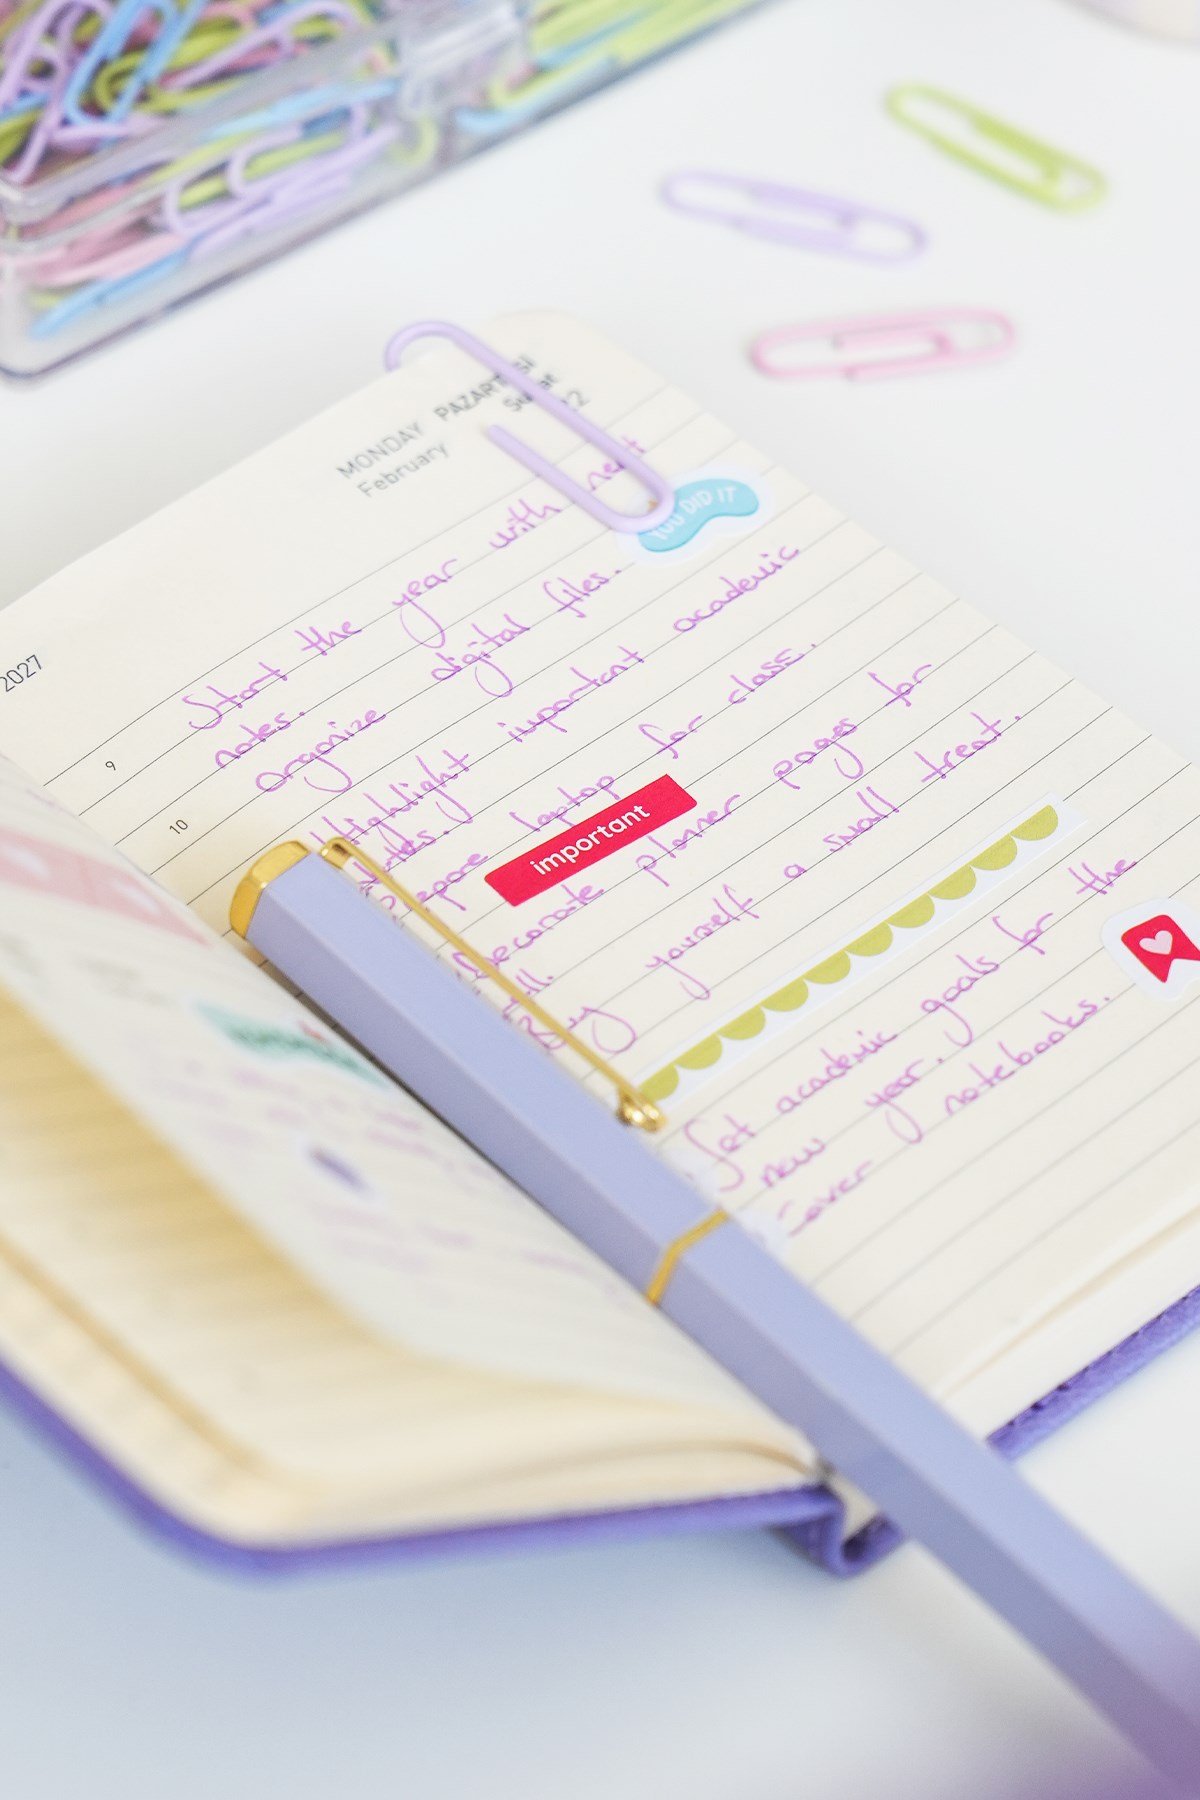 2027
MONDAY PAZARTESİ
February Şubat 22
9
10
Start the year with neat
notes.
YOU DID IT
organize digital files.
Highlight important academic
laptop for class.
important
Decorate planner pages for
Buy yourself a small treat.
Set academic goals for the
new year.
Cover notebooks.